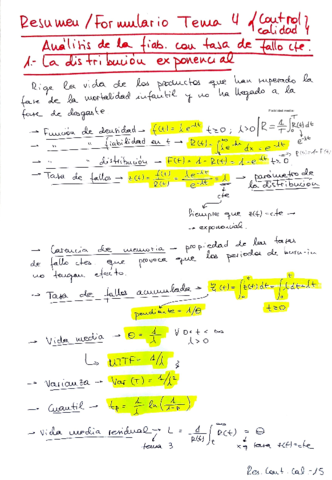 Resumen/Formulario Tema 4 {Control calidad}
Análisis de la fiab. con tasa de fallo cte.
1- La distribución exponencial
Rige la vida de los productos que han superado la
fase de la mortalidad infantil y no ha llegado a la
fase de desgaste
→ Función de densidad → f(t) = λe^-λt t≥0, λ>0
→ " " fiabilidad → R(t) = ∫ λe^-λx dx = e^-λt
→ " " distribución → F(t) = 1 - R(t) = 1 - e^-λt t≥0
→ Tasa de fallos → r(t) = f(t)/R(t) = λe^-λt/e^-λt = λ → parámetro de la distribución
cte
Siempre que r(t)=cte →
→ exponencial.
→ Carencia de memoria → propiedad de las tasas
de fallo ctes que provoca que los periodos de burn-in
no tengan efecto.
→ Tasa de fallos acumulada → ∫ r(t)dt = ∫ λdt = λt
pendiente = 1/θ t≥0
→ Vida media → θ = 1/λ ∀ 0<t<∞
λ>0
MTTF = 1/λ
→ Varianza → Var(T) = 1/λ²
→ Cuantil → tp = 1/λ ln(1/1-p)
→ Vida media residual → L = 1/R(t) ∫ R(t) = θ
tema 3 tasa r(t)=cte
Res. Cont. Cal - 15